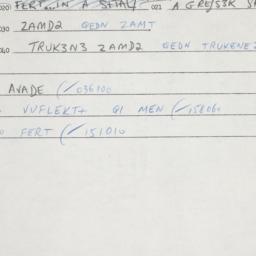 020) FERT IN A 021 A GREJS3K
030 ZAMD2 GEDN ZAMT
040 TRUK3N3 ZAMD2 GEDN TRUKENE
AVADE (/036100
VVFLEKT+ GI MEN (/158060
FERT (/151010